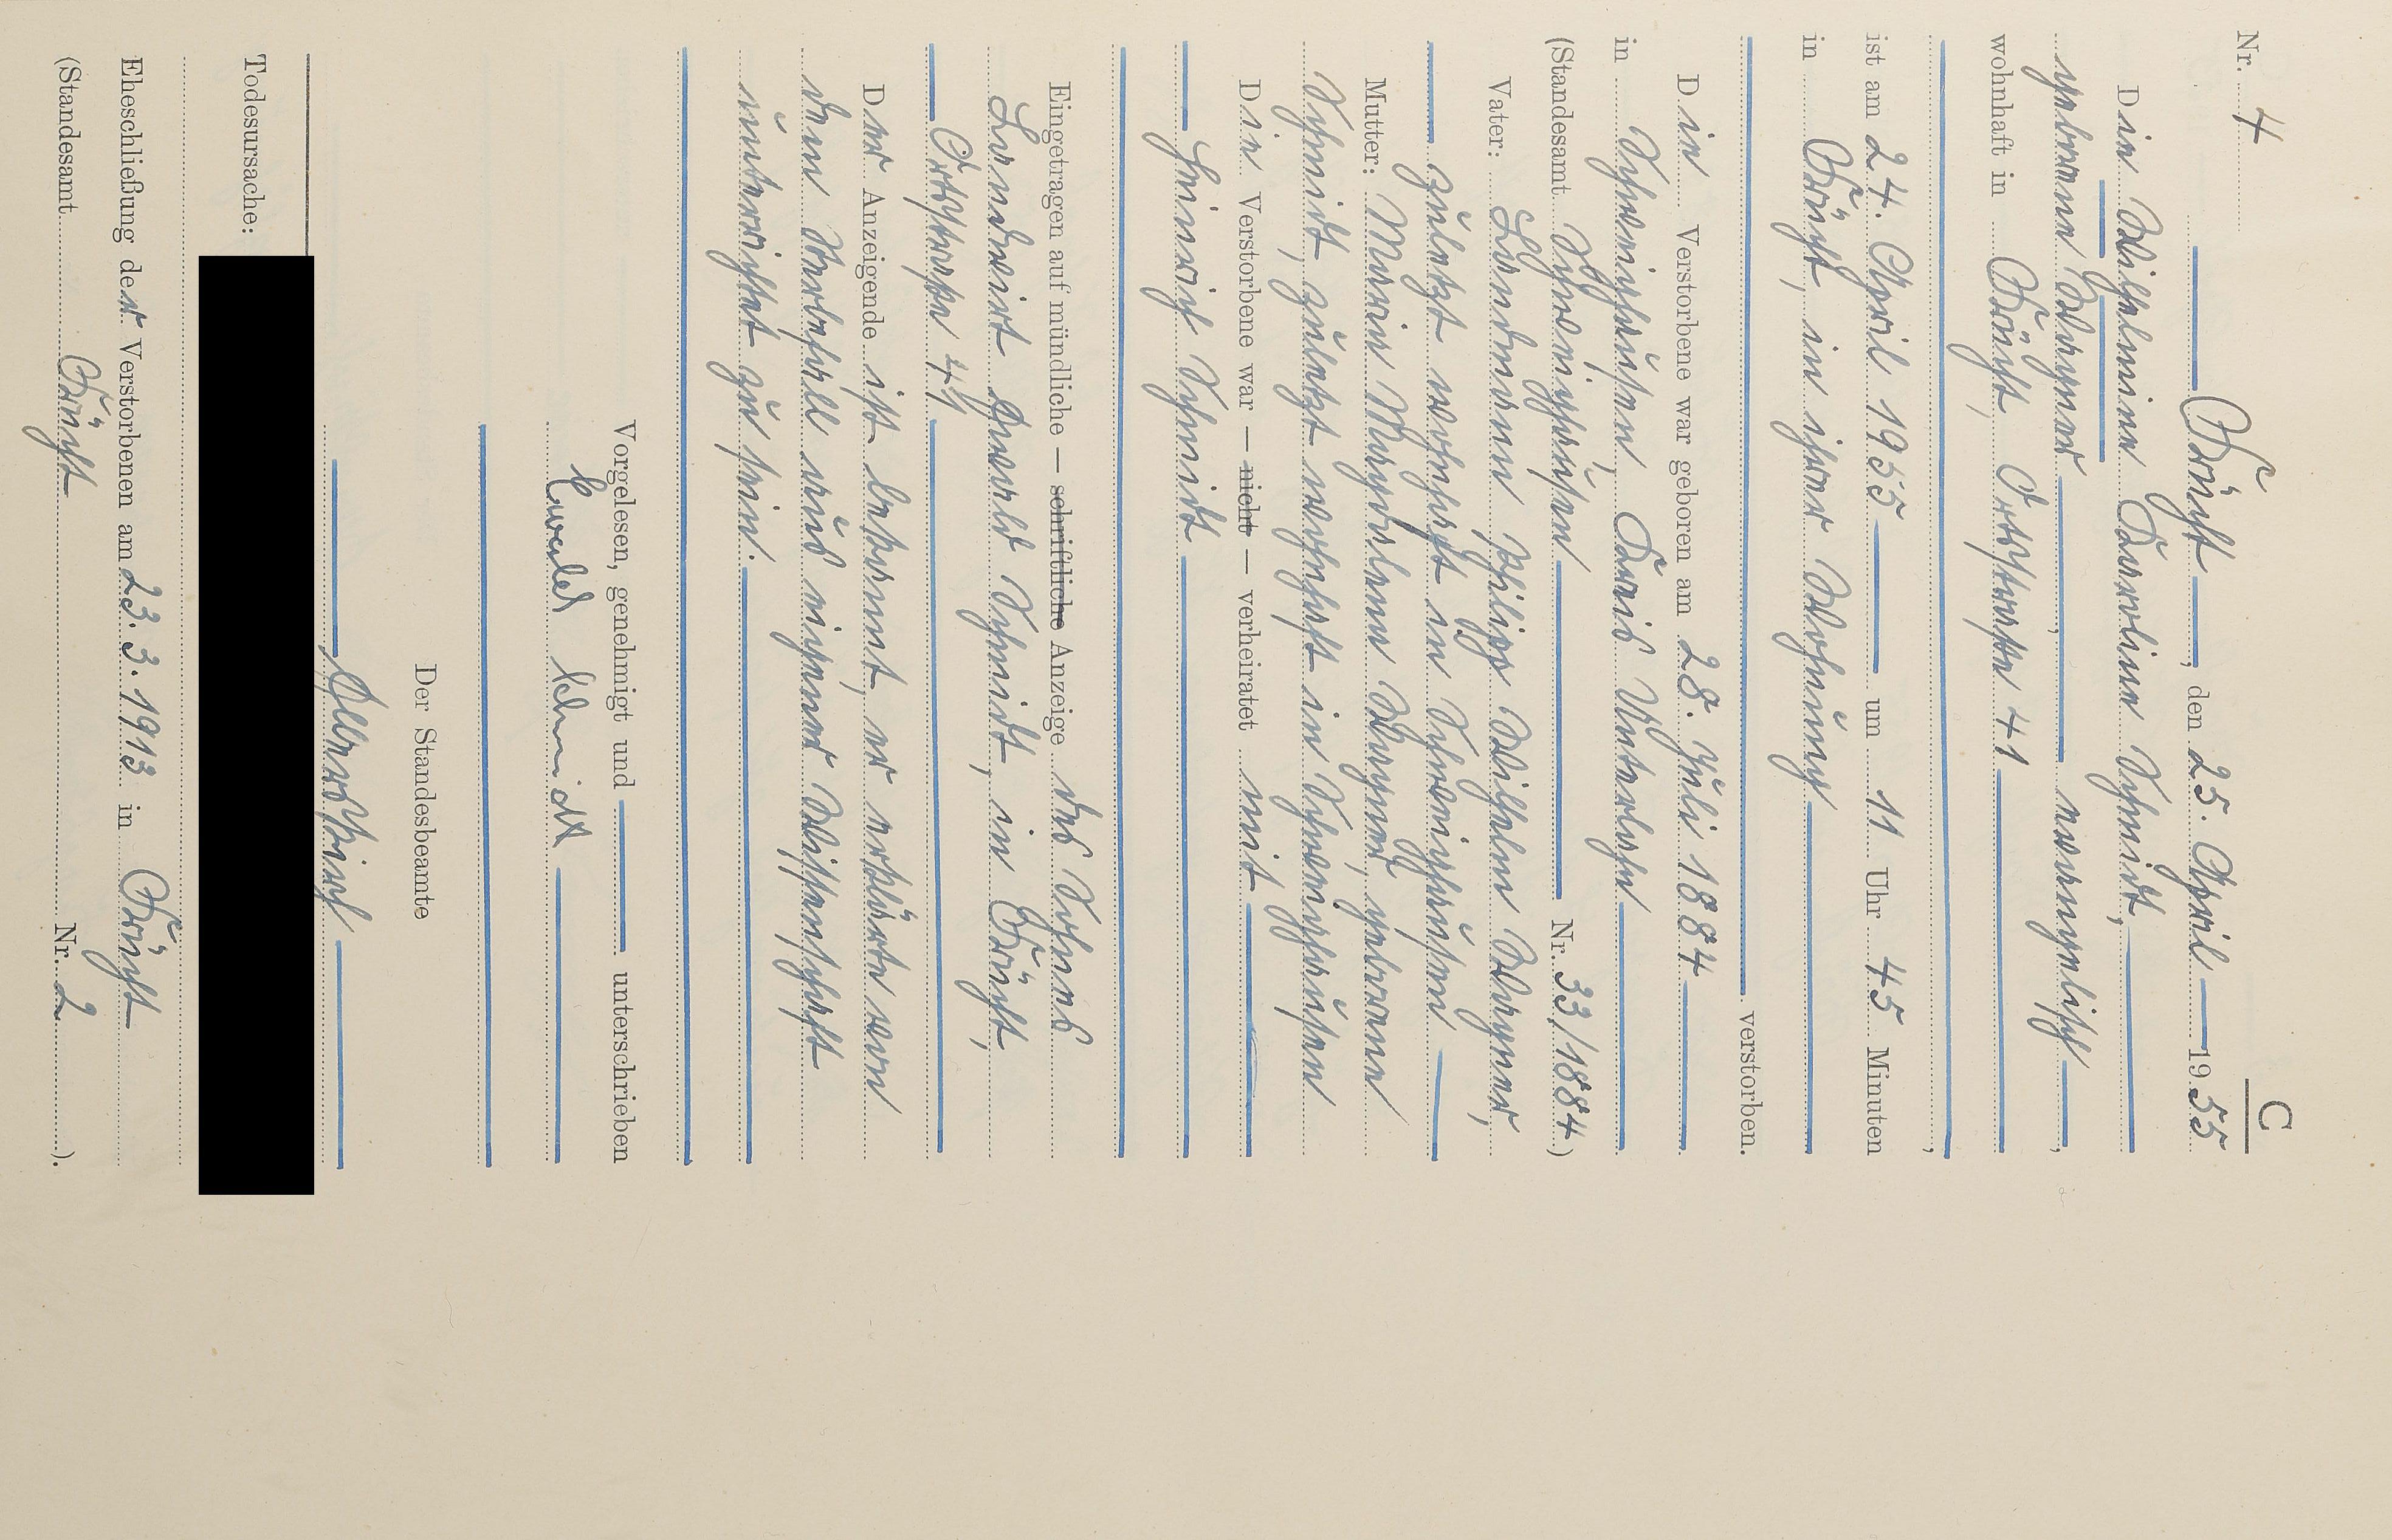 C
Nr. 4
Frücht, den 25. April 1955
Die Wilhelmine Karoline Schmidt,
geborene Wagner, evangelisch,
wohnhaft in Frücht, Ortsstraße 41
,
ist am 24. April 1955 um 11 Uhr 45 Minuten
in Frücht, in ihrer Wohnung
verstorben.
Die Verstorbene war geboren am 28. Juli 1884
in Schweighausen, Kreis Unterlahn
(Standesamt Schweighausen Nr. 33/1884)
Vater: Landmann Philipp Wilhelm Wagner,
zuletzt wohnhaft in Schweighausen
Mutter: Maria Magdalene Wagner, geborene
Schmidt, zuletzt wohnhaft in Schweighausen
Die Verstorbene war — nicht — verheiratet mit
Heinrich Schmidt
Eingetragen auf mündliche — schriftliche Anzeige des Sohnes
Landwirt Ewald Schmidt, in Frücht,
Ortsstraße
Der Anzeigende ist bekannt, er erklärte von
dem Sterbefall aus eigener Wissenschaft
unterrichtet zu sein.
Vorgelesen, genehmigt und unterschrieben
Ewald Schmidt
Der Standesbeamte
Todesursache:
Eheschließung der Verstorbenen am 23. 3. 1913 in Frücht
(Standesamt Frücht Nr. 2).